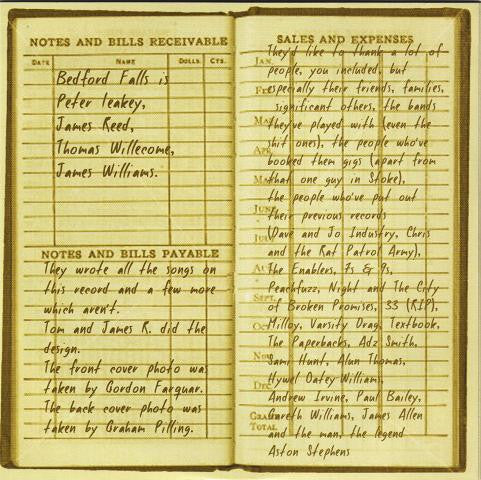 NOTES AND BILLS RECEIVABLE
DATE NAME DOLLS. CTS.
Bedford Falls is
Peter Leakey,
James Reed,
Thomas Willecome,
James Williams.
NOTES AND BILLS PAYABLE
They wrote all the songs on
this record and a few more
which aren't.
Tom and James R. did the
design.
The front cover photo was
taken by Gordon Farquar.
The back cover photo was
taken by Graham Pilling.
SALES AND EXPENSES
They'd like to thank a lot of
JAN.
people, you included, but
especially their friends, families,
significant others, the bands
they've played with (even the
shit ones), the people who've
booked them gigs (apart from
that one guy in Stoke),
the people who've put out
JUNE
their previous records
(Dave and Jo Industry, Chris
JULY
and the Rat Patrol Army),
The Enablers, 7s & 9s,
Peachfuzz, Night and The City
SEPT.
of Broken Promises, 33 (RIP),
Milloy, Varsity Drag, Textbook,
The Paperbacks, Adz Smith,
NOV.
Sami Hunt, Alun Thomas,
Hywel Oatey-William,
DEC.
Andrew Irvine, Paul Bailey,
Gareth Williams, James Allen
GRAND TOTAL
and the man, the legend
Aston Stephens